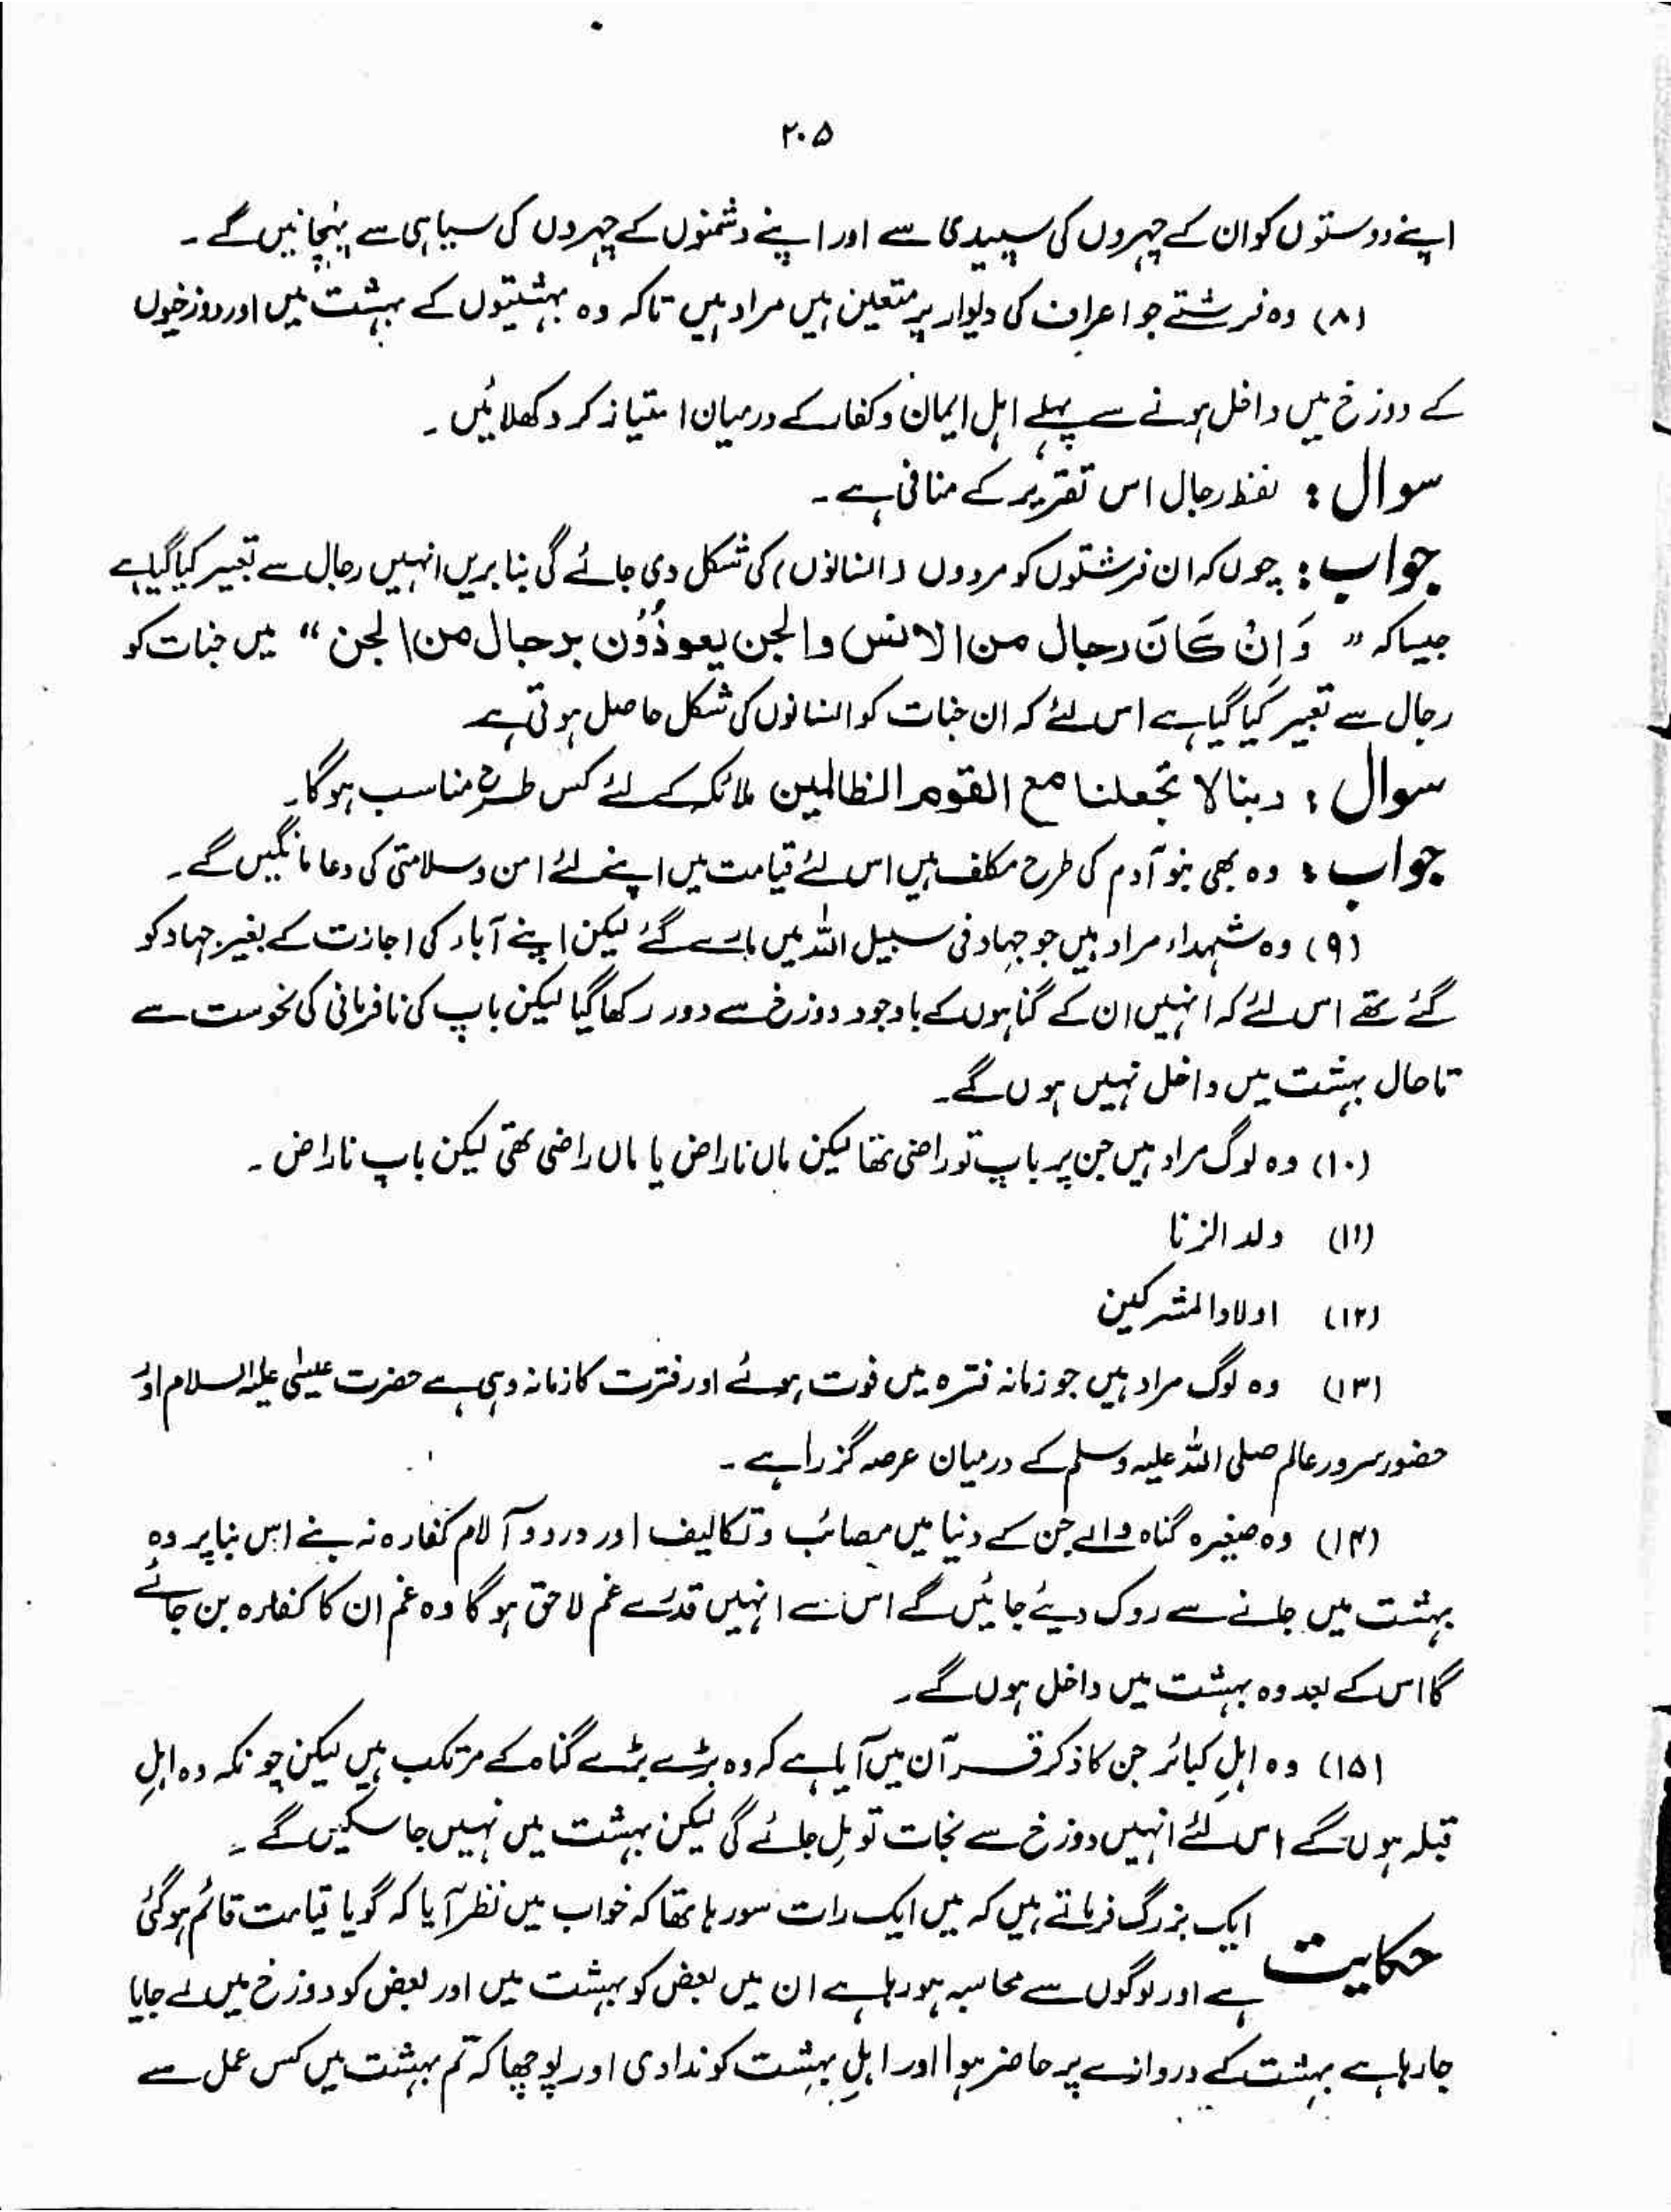 ۲۰۵
اپنے دوستوں کو ان کے چہروں کی سپیدی سے اور اپنے دشمنوں کے چہروں کی سیاہی سے پہنچانیں گے ۔
(۸) وہ فرشتے جو اعراف کی دیوار پر متعین ہیں مراد ہیں تاکہ وہ بہشتیوں کے بہشت میں اور دوزخیوں
کے دوزخ میں داخل ہونے سے پہلے اہل ایمان و کفار کے درمیان امتیاز کر دکھلائیں ۔
سوال : لفظ رجال اس تقریر کے منافی ہے ۔
جواب : چوں کہ ان فرشتوں کو مردوں (انسانوں) کی شکل دی جائے گی بنا بریں انہیں رجال سے تعبیر کیا گیا ہے
جیسا کہ " وَاِنْ کَانَ رجال من الانس والجن یعوذُوْن برجال من الجن " میں جنات کو
رجال سے تعبیر کیا گیا ہے اس لئے کہ ان جنات کو انسانوں کی شکل حاصل ہوتی ہے
سوال : ربنا لا تجعلنا مع القوم الظالمین ملائکہ کے لئے کس طرح مناسب ہوگا ۔
جواب : وہ بھی بنو آدم کی طرح مکلف ہیں اس لئے قیامت میں اپنے لئے امن و سلامتی کی دعا مانگیں گے ۔
(۹) وہ شہداء مراد ہیں جو جہاد فی سبیل اللہ میں مارے گئے لیکن اپنے آباء کی اجازت کے بغیر جہاد کو
گئے تھے اس لئے کہ انہیں ان کے گناہوں کے باوجود دوزخ سے دور رکھا گیا لیکن باپ کی نافرمانی کی نحوست سے
تاحال بہشت میں داخل نہیں ہوں گے ۔
(۱۰) وہ لوگ مراد ہیں جن پر باپ تو راضی تھا لیکن ماں ناراض یا ماں راضی تھی لیکن باپ ناراض ۔
(۱۱) ولد الزنا
(۱۲) اولاد المشرکین
(۱۳) وہ لوگ مراد ہیں جو زمانہ فترہ میں فوت ہوئے اور فترت کا زمانہ وہی ہے حضرت عیسیٰ علیہ السلام اور
حضور سرور عالم صلی اللہ علیہ وسلم کے درمیان عرصہ گزرا ہے ۔
(۱۴) وہ صغیرہ گناہ والے جن کے دنیا میں مصائب و تکالیف اور درد و آلام کفارہ نہ بنے اس بنا پر وہ
بہشت میں جانے سے روک دیئے جائیں گے اس سے انہیں قدرے غم لاحق ہوگا وہ غم ان کا کفارہ بن جائے
گا اس کے بعد وہ بہشت میں داخل ہوں گے ۔
(۱۵) وہ اہلِ کبائر جن کا ذکر قرآن میں آیا ہے کہ وہ بڑے بڑے گناہ کے مرتکب ہیں لیکن چونکہ وہ اہلِ
قبلہ ہوں گے اس لئے انہیں دوزخ سے نجات تو مِل جائے گی لیکن بہشت میں نہیں جا سکیں گے ۔
حکایت ایک بزرگ فرماتے ہیں کہ میں ایک رات سو رہا تھا کہ خواب میں نظر آیا کہ گویا قیامت قائم ہو گئی
ہے اور لوگوں سے محاسبہ ہو رہا ہے ان میں بعض کو بہشت میں اور بعض کو دوزخ میں لے جایا
جا رہا ہے بہشت کے دروازے پر حاضر ہوا اور اہلِ بہشت کو ندا دی اور پوچھا کہ تم بہشت میں کس عمل سے